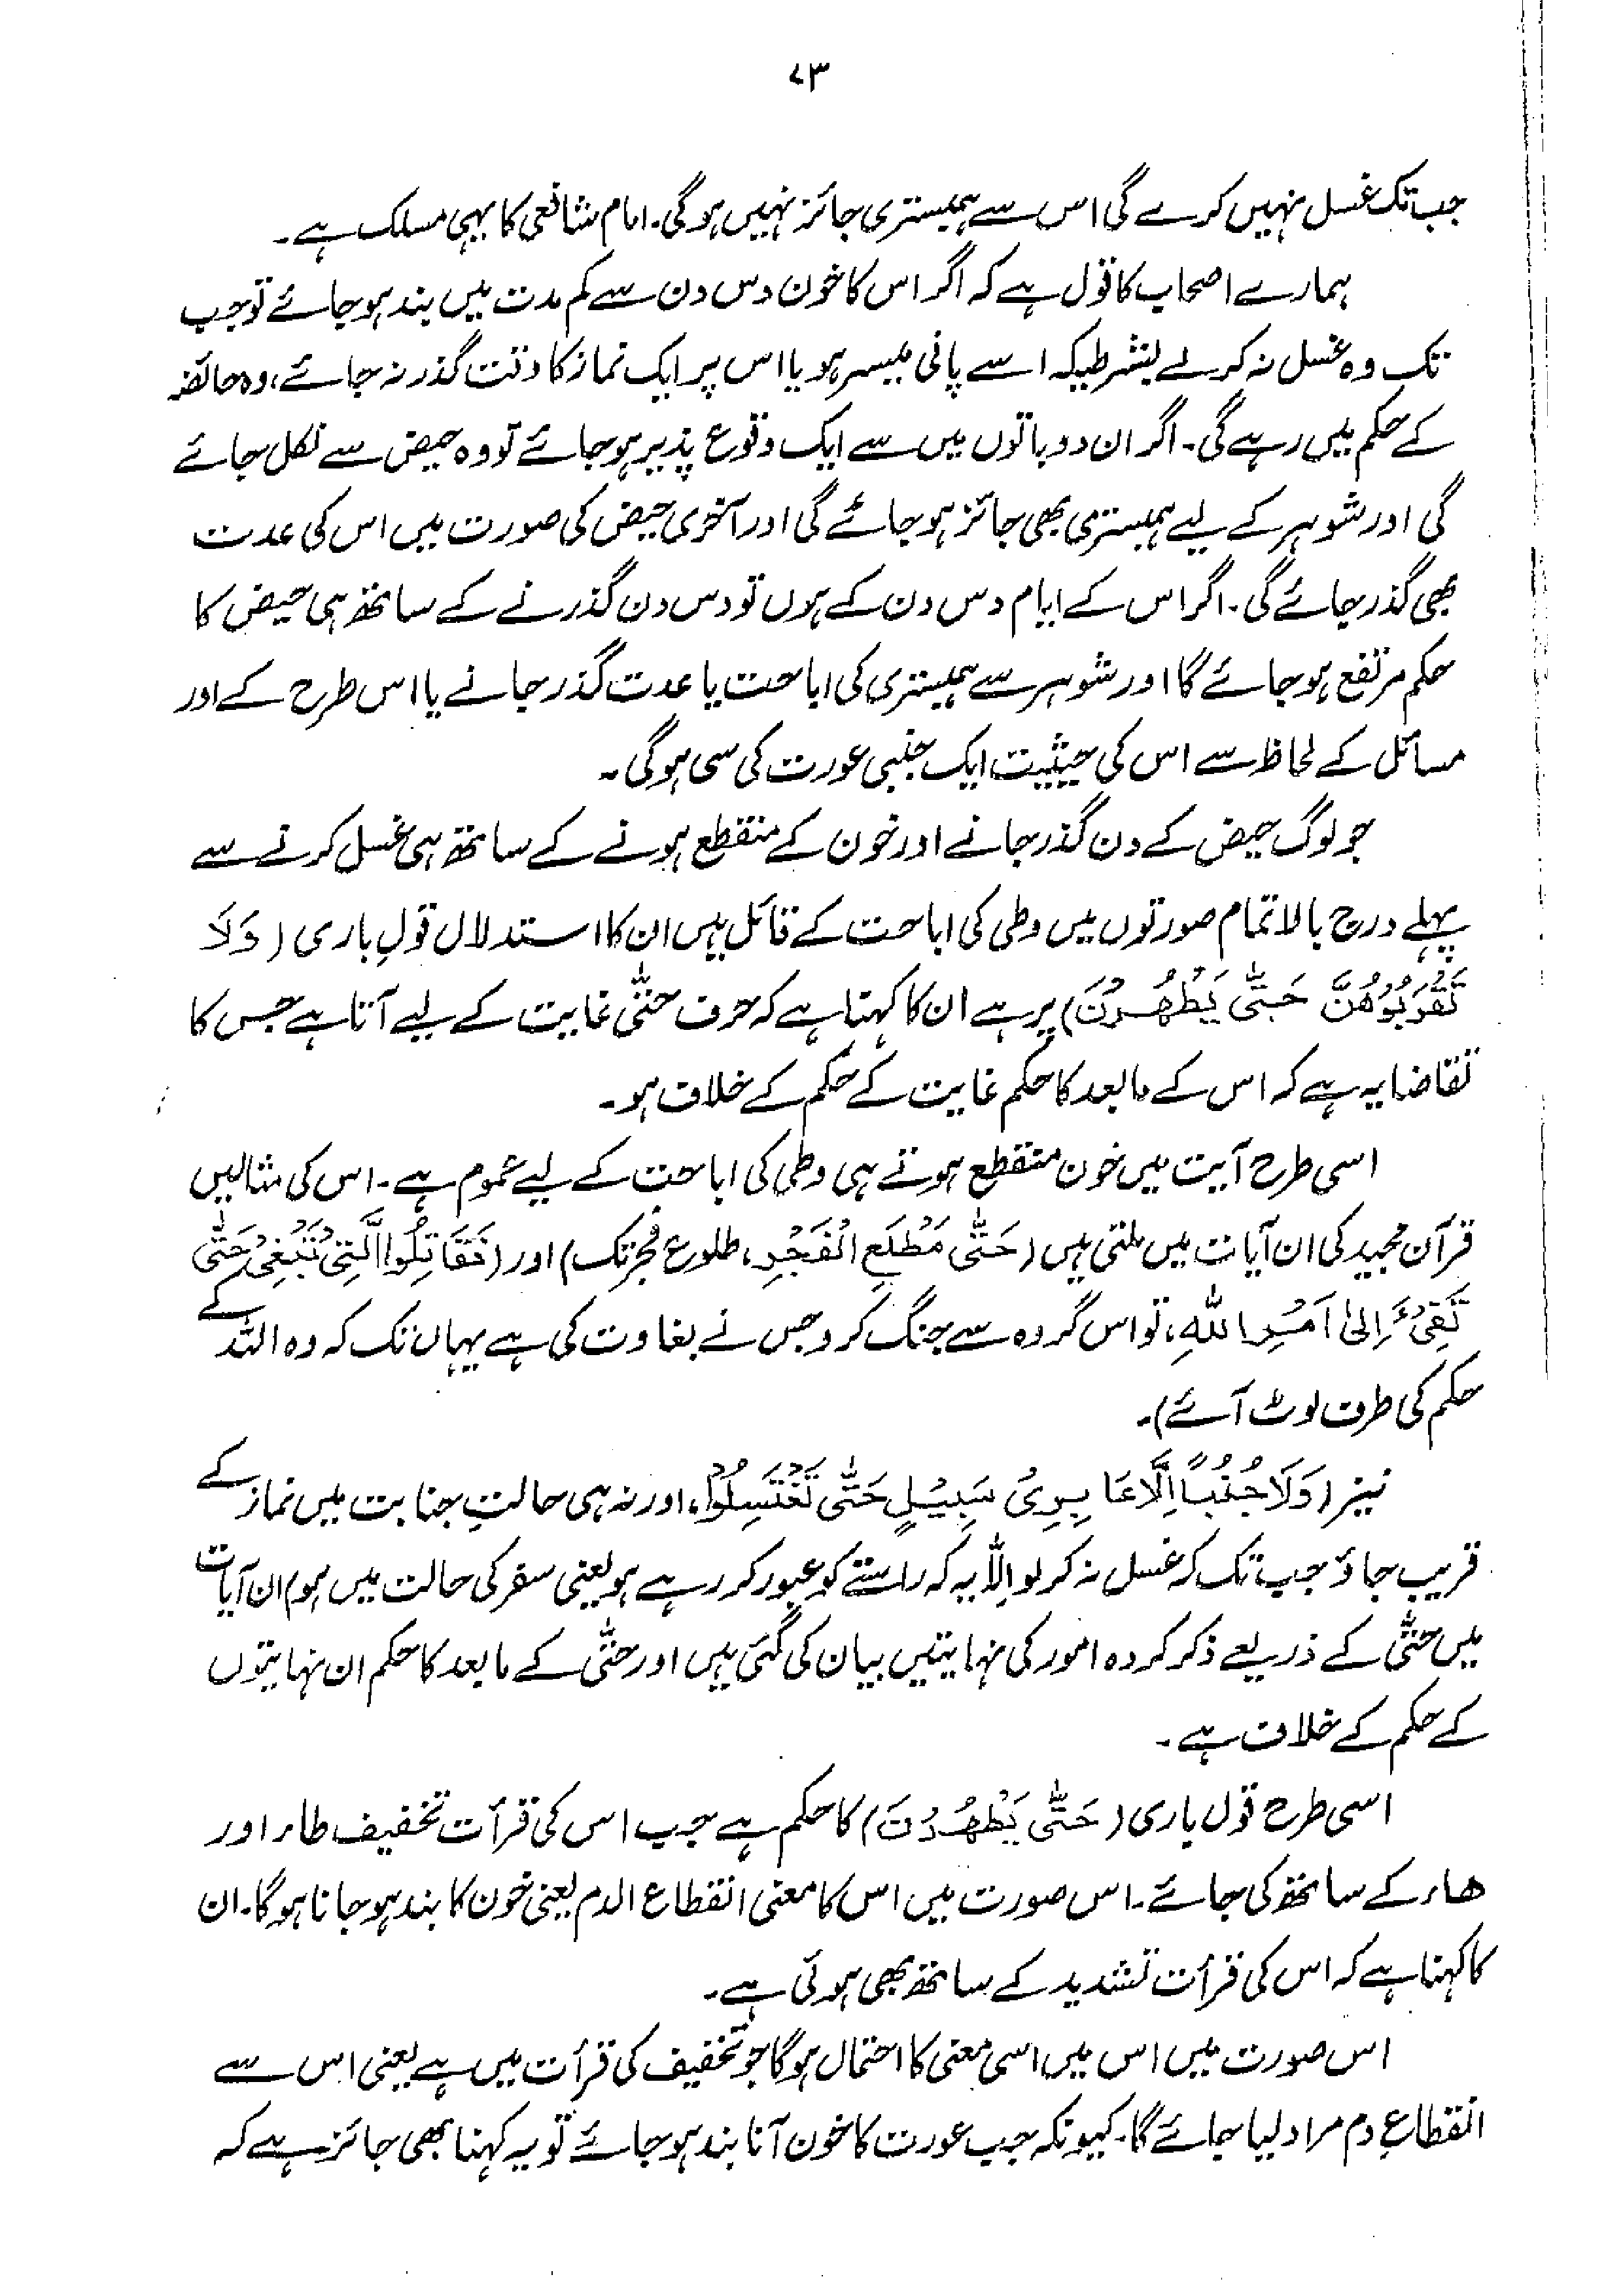 ۷۳
جب تک غسل نہیں کرے گی اس سے ہمبستری جائز نہیں ہو گی۔ امام شافعی کا یہی مسلک ہے۔
ہمارے اصحاب کا قول ہے کہ اگر اس کا خون دس دن سے کم مدت میں بند ہو جائے تو جب
تک وہ غسل نہ کر لے بشرطیکہ اسے پانی میسر ہو یا اس پر ایک نماز کا وقت گذر نہ جائے، وہ حائضہ
کے حکم میں رہے گی۔ اگر ان دو باتوں میں سے ایک وقوع پذیر ہو جائے تو وہ حیض سے نکل جائے
گی اور شوہر کے لیے ہمبستری بھی جائز ہو جائے گی اور آخری حیض کی صورت میں اس کی عدت
بھی گذر جائے گی۔ اگر اس کے ایام دس دن کے ہوں تو دس دن گذرنے کے ساتھ ہی حیض کا
حکم مرتفع ہو جائے گا اور شوہر سے ہمبستری کی اباحت یا عدت گذر جانے یا اس طرح کے اور
مسائل کے لحاظ سے اس کی حیثیت ایک جنبی عورت کی سی ہو گی۔
جو لوگ حیض کے دن گذر جانے اور خون کے منقطع ہونے کے ساتھ ہی غسل کرنے سے
پہلے درج بالا تمام صورتوں میں وطی کی اباحت کے قائل ہیں ان کا استدلال قولِ باری (وَلَا
تَقْرَبُوْهُنَّ حَتّٰى يَطْهُرْنَ) پر ہے ان کا کہنا ہے کہ حرف حتّٰی غایت کے لیے آتا ہے جس کا
تقاضا یہ ہے کہ اس کے مابعد کا حکم غایت کے حکم کے خلاف ہو۔
اسی طرح آیت میں خون منقطع ہوتے ہی وطی کی اباحت کے لیے عموم ہے۔ اس کی مثالیں
قرآن مجید کی ان آیات میں ملتی ہیں (حَتّٰى مَطْلَعِ الْفَجْرِ، طلوع فجر تک) اور (فَقَاتِلُوا الَّتِىْ تَبْغِىْ حَتّٰى
تَفِىْٓءَ اِلىٰ اَمْرِ اللهِ، تو اس گروہ سے جنگ کرو جس نے بغاوت کی ہے یہاں تک کہ وہ اللہ کے
حکم کی طرف لوٹ آئے)۔
نیز (وَلَا جُنُبًا اِلَّا عَابِرِىْ سَبِيْلٍ حَتّٰى تَغْتَسِلُوْا، اور نہ ہی حالتِ جنابت میں نماز کے
قریب جاؤ جب تک کہ غسل نہ کر لو اِلّا یہ کہ راستے کو عبور کر رہے ہو یعنی سفر کی حالت میں ہو) ان آیات
میں حتّٰی کے ذریعے ذکر کردہ امور کی نہایتیں بیان کی گئی ہیں اور حتّٰی کے مابعد کا حکم ان نہایتوں
کے حکم کے خلاف ہے۔
اسی طرح قول باری (حَتّٰى يَطْهُرْنَ) کا حکم ہے جب اس کی قرأت تخفیف طاء اور
ھاء کے ساتھ کی جائے۔ اس صورت میں اس کا معنی انقطاع الدم یعنی خون کا بند ہو جانا ہو گا۔ ان
کا کہنا ہے کہ اس کی قرأت تشدید کے ساتھ بھی ہوئی ہے۔
اس صورت میں اس میں اسی معنی کا احتمال ہو گا جو تخفیف کی قرأت میں ہے یعنی اس سے
انقطاعِ دم مراد لیا جائے گا۔ کیونکہ جب عورت کا خون آنا بند ہو جائے تو یہ کہنا بھی جائز ہے کہ